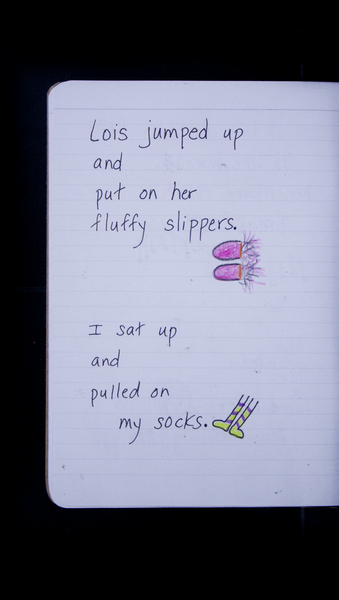 Lois jumped up
and
put on her
fluffy slippers.
I sat up
and
pulled on
my socks.